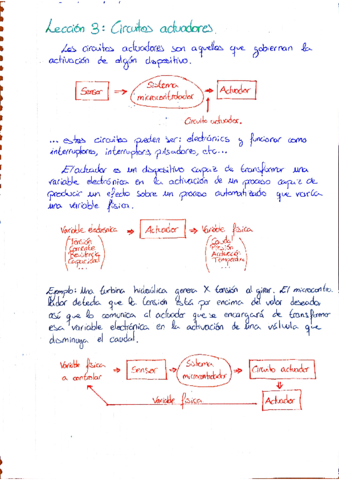 Lección 3: Circuitos actuadores.
Los circuitos actuadores son aquellos que gobiernan la
activación de algún dispositivo.
Sensor → Sistema microcontrolador → Actuador
Circuito actuador.
... estos circuitos pueden ser: electrónicos y funcionar como
interruptores, interruptores pulsadores, etc...
El actuador es un dispositivo capaz de transformar una
variable electrónica en la activación de un proceso capaz de
producir un efecto sobre un proceso automatizado que varía
una variable física.
Variable electrónica → Actuador → Variable física
Tensión
Corriente
Resistencia
Capacidad
Caudal
Presión
Temperatura
Ejemplo: Una turbina hidráulica genera X tensión al girar. El microcontro-
lador detecta que la tensión está por encima del valor deseado
así que lo comunica al actuador que se encargará de transformar
esa variable electrónica en la activación de una válvula que
disminuya el caudal.
Variable física a controlar → Sensor → Sistema microcontrolador → Circuito actuador
Variable física
Actuador